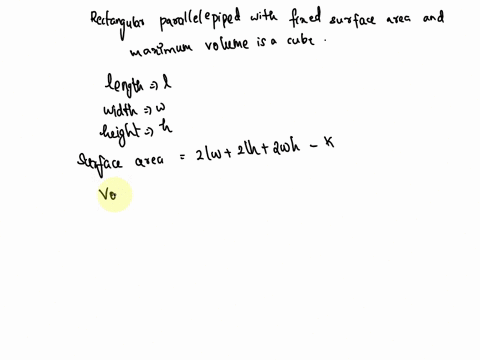 Rectangular parallelepiped with fixed surface area and
maximum volume is a cube.
length => l
width => w
height => h
Surface area = 2lw + 2lh + 2wh - K
Vo